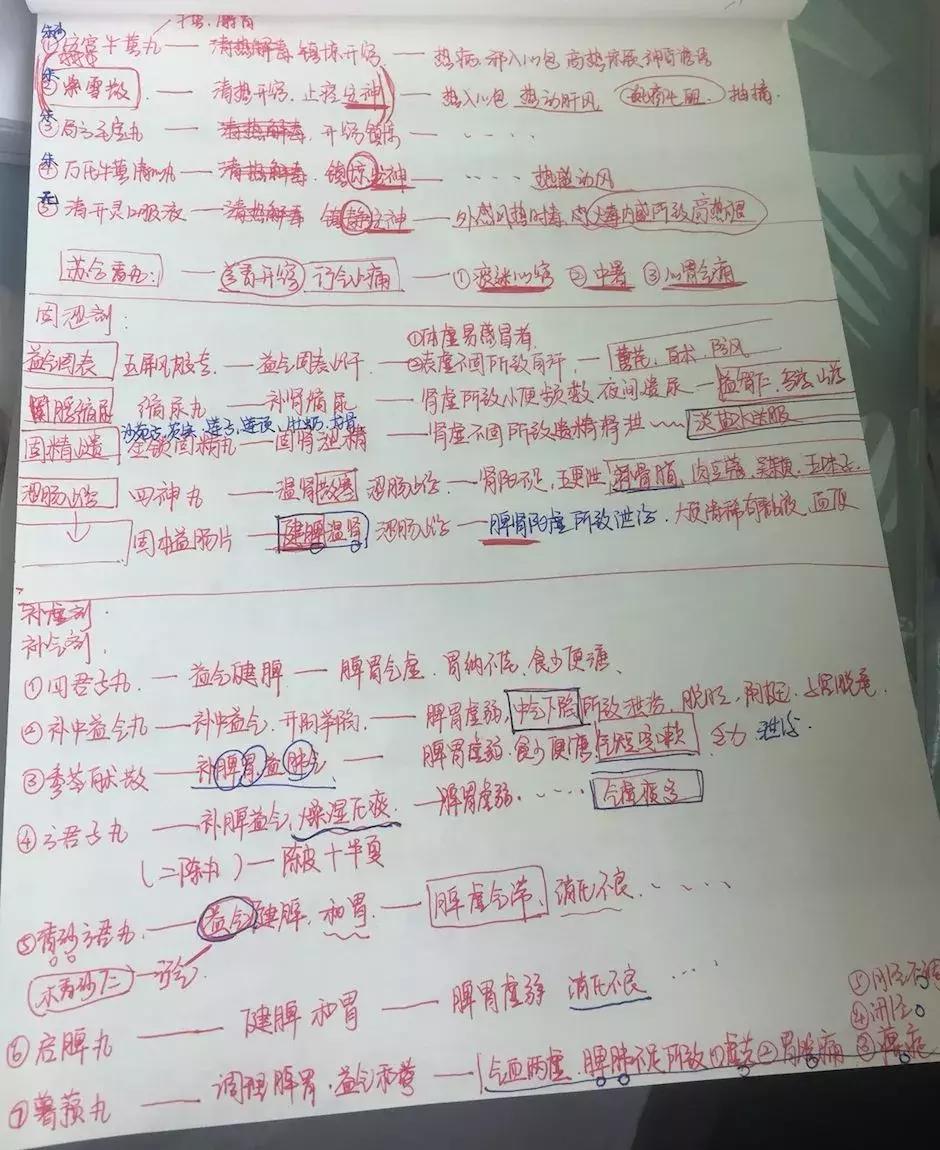 牛黄、麝香
朱 ①安宫牛黄丸 — 清热解毒 镇惊开窍 — 热病 邪入心包 高热惊厥 神昏谵语
朱 ②紫雪散 — 清热开窍、止痉安神 — 热入心包 热动肝风 抽搐
朱 ③局方至宝丸 — 清热解毒、开窍镇惊 — ....
朱 ④万氏牛黄清心丸 — 清热解毒、镇惊安神 — .... 热盛动风
⑤清开灵口服液 — 清热解毒 镇静安神 — 外感风热时毒、火毒内盛所致高热
苏合香丸: — 芳香开窍 行气止痛 — ①痰迷心窍 ②中暑 ③心胃气痛
固涩剂:
①体虚易感冒者
益气固表 玉屏风胶囊 — 益气固表止汗 — ②表虚不固所致自汗 — 黄芪、白术、防风
固脬缩尿 缩尿丸 — 补肾缩尿 — 肾虚所致小便频数 夜间遗尿 — 益智仁、乌药、山药
沙苑子、芡实、莲子、莲须、牡蛎、龙骨
固精止遗 金锁固精丸 — 固肾涩精 — 肾虚不固所致遗精滑泄 淡盐水送服
涩肠止泻 四神丸 — 温肾散寒 涩肠止泻 — 肾阳不足、五更泄 补骨脂、肉豆蔻、吴萸、五味子
固本益肠片 — 健脾温肾 涩肠止泻 — 脾肾阳虚所致泄泻、大便清稀有黏液、血便
补虚剂:
补气剂.
①四君子丸 — 益气健脾 — 脾胃气虚、胃纳不佳、食少便溏、
②补中益气丸 — 补中益气、升阳举陷 — 脾胃虚弱、中气下陷所致泄泻、脱肛、阴挺
③参苓白术散 — 补脾胃益肺气 — 脾胃虚弱、食少便溏 气短咳嗽 乏力 泄泻
④六君子丸 — 补脾益气、燥湿化痰 — 脾胃虚弱、.... 气虚痰多
(二陈丸) — 陈皮十半夏
⑤香砂六君丸 — 益气健脾、和胃 — 脾虚气滞、消化不良、....
木香砂仁 — 行气
⑥启脾丸 — 健脾和胃 — 脾胃虚弱 消化不良 ....
⑦薯蓣丸 — 调理脾胃、益气和营 — 气血两虚、脾肺不足所致①虚劳②胃脘痛 ③痹症
④闭经
⑤月经不调